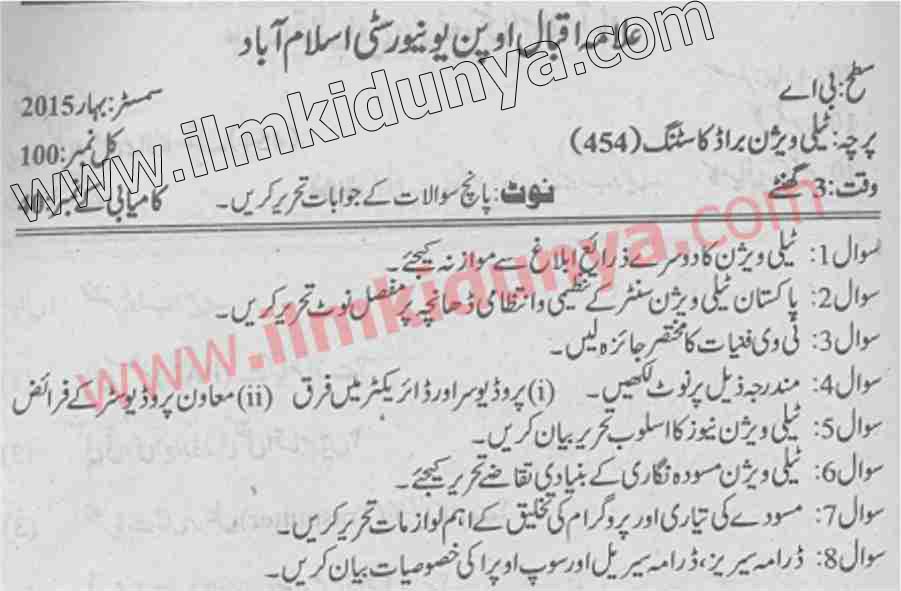 علامہ اقبال اوپن یونیورسٹی اسلام آباد
سطح: بی اے
سمسٹر: بہار 2015
پرچہ: ٹیلی ویژن براڈ کاسٹنگ (454)
کل نمبر: 100
وقت: 3 گھنٹے
نوٹ: پانچ سوالات کے جوابات تحریر کریں۔
کامیابی کے نمبر: 40
سوال 1: ٹیلی ویژن کا دوسرے ذرائع ابلاغ سے موازنہ کیجئے۔
سوال 2: پاکستان ٹیلی ویژن سنٹر کے تنظیمی و انتظامی ڈھانچہ پر مفصل نوٹ تحریر کریں۔
سوال 3: ٹی وی فنیات کا مختصر جائزہ لیں۔
سوال 4: مندرجہ ذیل پر نوٹ لکھیں۔ (i) پروڈیوسر اور ڈائریکٹر میں فرق (ii) معاون پروڈیوسر کے فرائض
سوال 5: ٹیلی ویژن نیوز کا اسلوب تحریر بیان کریں۔
سوال 6: ٹیلی ویژن مسودہ نگاری کے بنیادی تقاضے تحریر کیجئے۔
سوال 7: مسودے کی تیاری اور پروگرام کی تخلیق کے اہم لوازمات تحریر کریں۔
سوال 8: ڈرامہ سیریز، ڈرامہ سیریل اور سوپ اوپرا کی خصوصیات بیان کریں۔
www.ilmkidunya.com
www.ilmkidunya.com